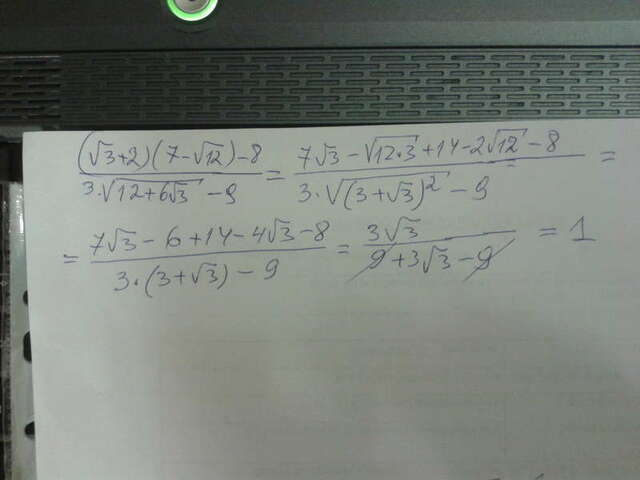 (√3+2)(7-√12)-8 / 3·√12+6√3 -9 = 7√3 - √12·3 +14-2√12 -8 / 3·√(3+√3)² -9 =
= 7√3 - 6+14-4√3-8 / 3·(3+√3) - 9 = 3√3 / 9+3√3-9 = 1